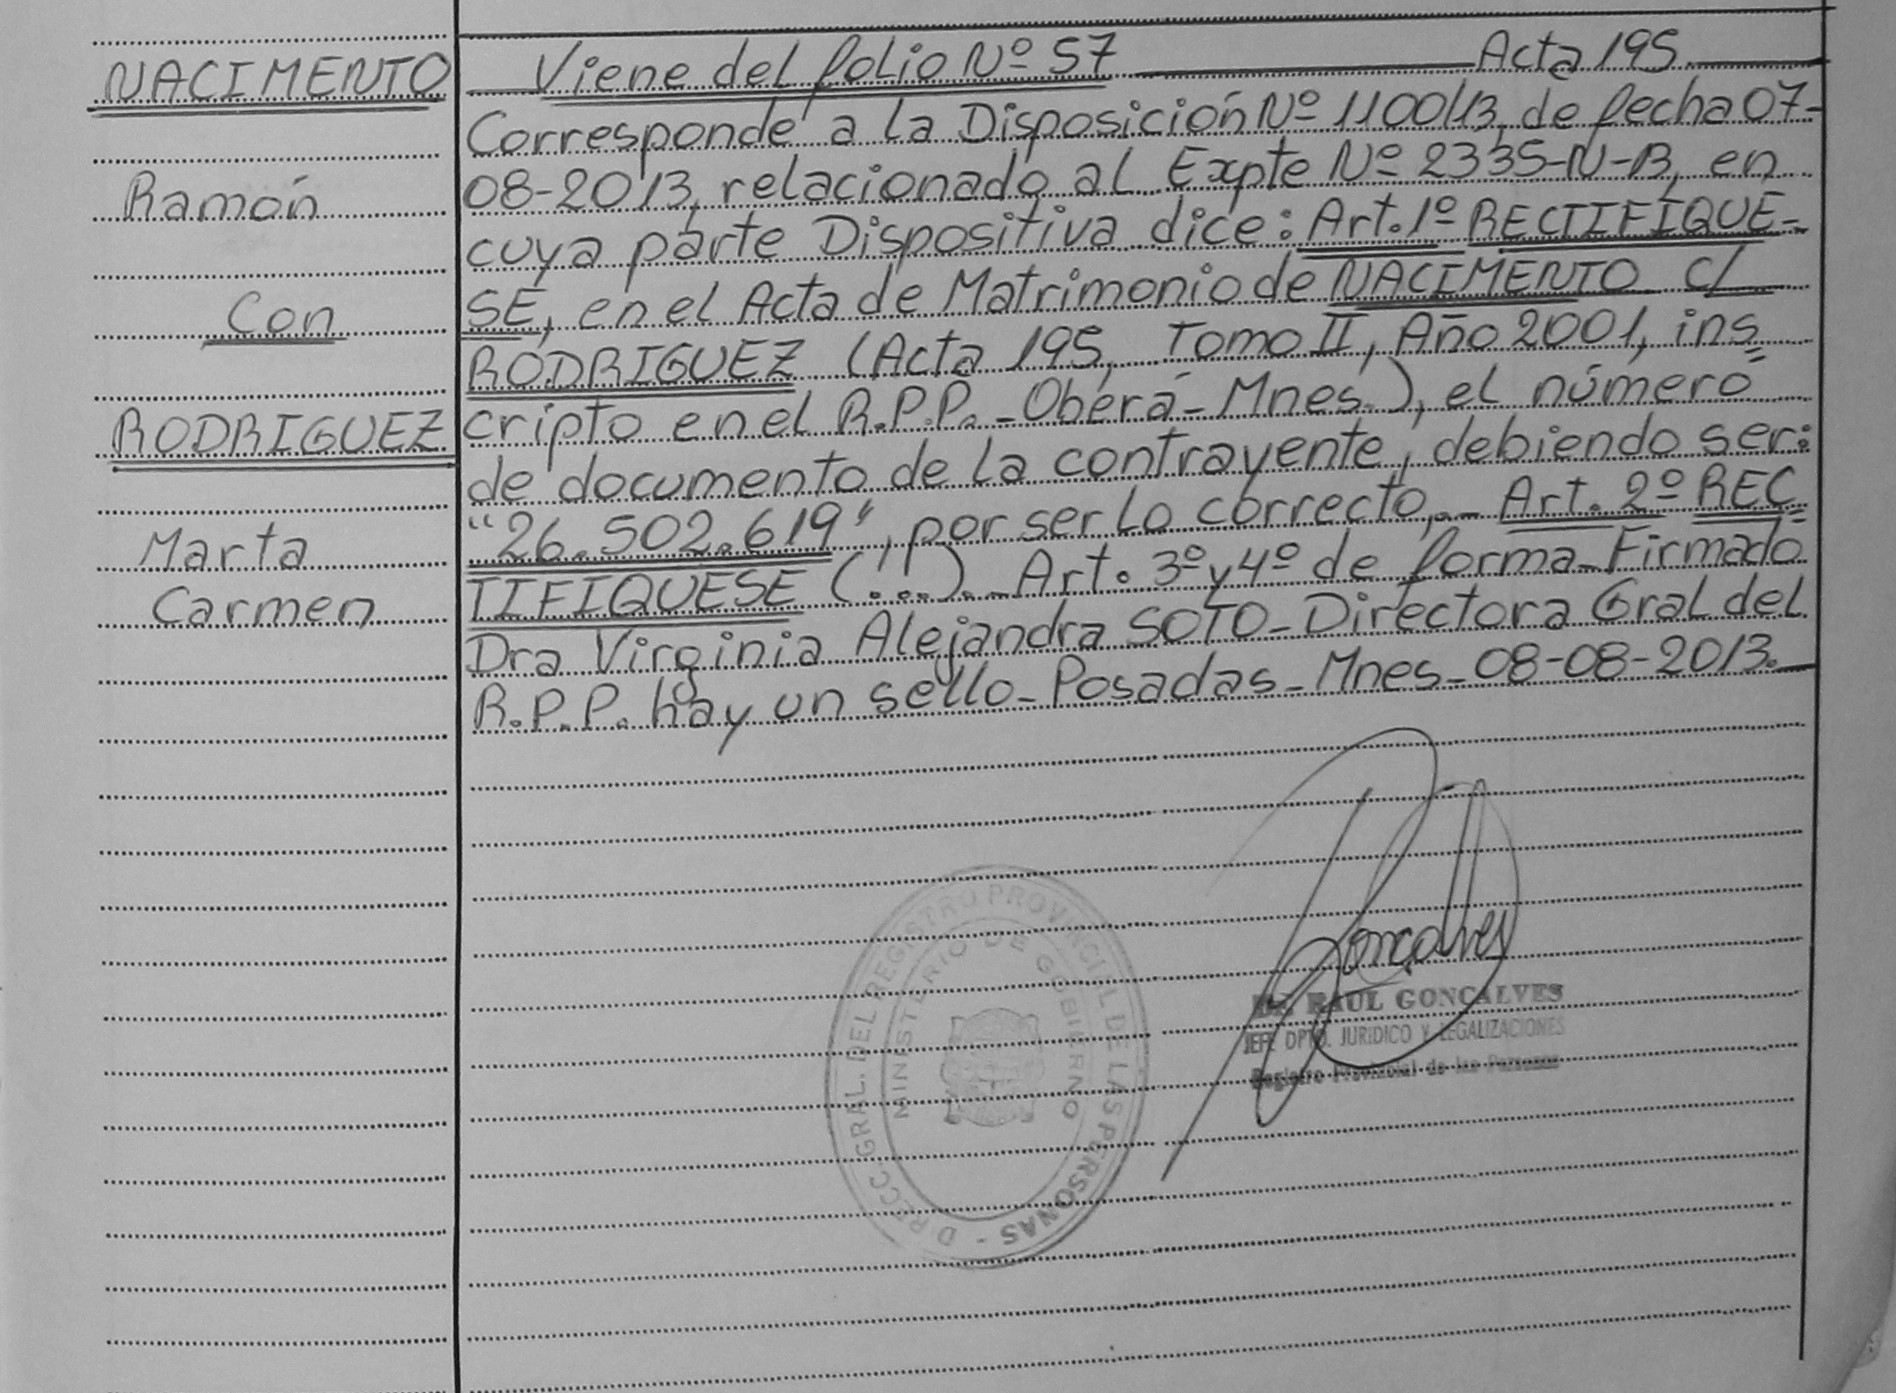 NACIMENTO
Ramón
Con
RODRIGUEZ
Marta
Carmen
Viene del folio Nº 57 Acta 195
Corresponde a la Disposición Nº 1100/13, de fecha 07-
08-2013, relacionado al Expte Nº 2335-N-13, en
cuya parte Dispositiva dice: Art. 1º RECTIFÍQUE-
SE, en el Acta de Matrimonio de NACIMENTO c/
RODRIGUEZ (Acta 195, Tomo II, Año 2001, ins
cripto en el R.P.P. - Oberá - Mnes.), el número
de documento de la contrayente, debiendo ser:
"26.502.619", por ser lo correcto,.- Art. 2º REC=
TIFIQUESE (...).- Art. 3º y 4º de forma - Firmado
Dra Virginia Alejandra SOTO - Directora Gral del
R.P.P. hay un sello - Posadas - Mnes - 08-08-2013.
DIRECC. GRAL. DEL REGISTRO PROVINCIAL DE LAS PERSONAS -
MINISTERIO DE GOBIERNO
Gonçalves
Dr. RAUL GONCALVES
JEFE DPTO. JURIDICO Y LEGALIZACIONES
Registro Provincial de las Personas